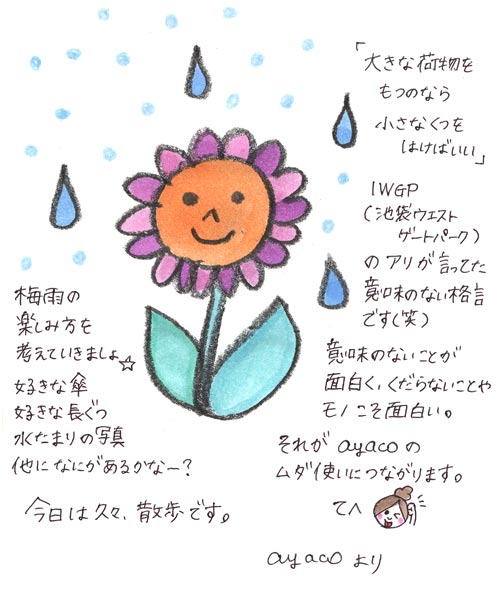 「
大きな荷物を
もつのなら
小さなくつを
はけばいい」
IWGP
(池袋ウエスト
ゲートパーク)
のアリが言ってた
意味のない格言
です(笑)
意味のないことが
面白く、くだらないことや
モノこそ面白い。
それがayacoの
ムダ使いにつながります。
てへ
ayacoより
梅雨の
楽しみ方を
考えていきましょ☆
好きな傘
好きな長ぐつ
水たまりの写真
他になにがあるかなー?
今日は久々、散歩です。